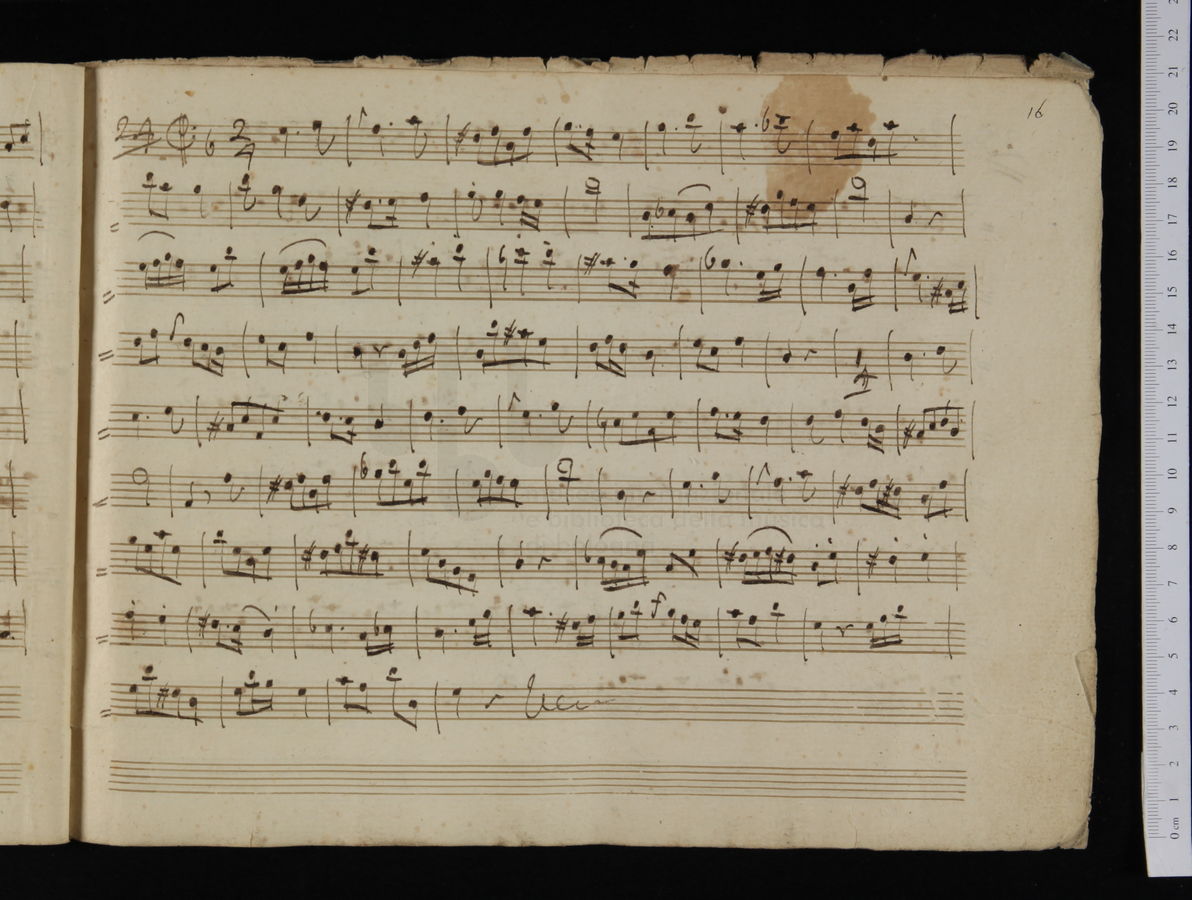 16
24
2
4
e biblioteca della musica
di bologna
22
21
20
19
18
17
16
15
14
13
12
11
10
9
8
7
6
5
4
3
2
1
0 cm